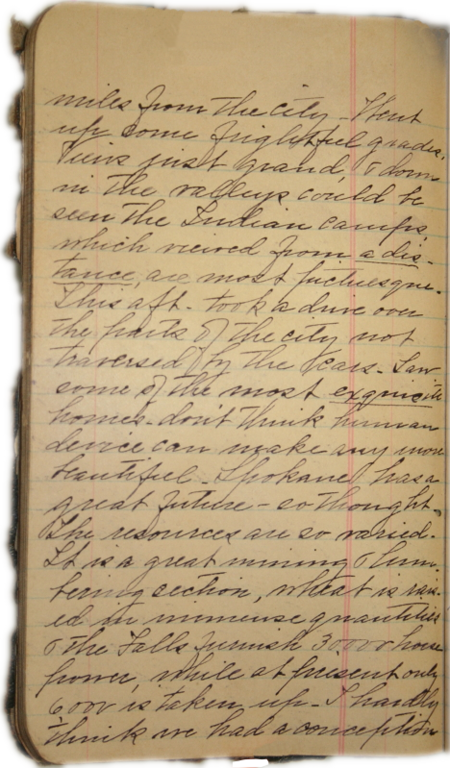 miles from the city - Went
up some frightful grades.
Views just grand, & down
in the valleys could be
seen the Indian camps,
which viewed from a dis-
tance, are most pictuesque.
This aft. took a drive over
the parts of the city not
traversed by the cars - Saw
some of the most exquisite
homes - don't think human
device can make any more
beautiful - Spokane has a
great future - so thought.
The resources are so varied.
It is a great mining & lum-
bering section, wheat is rais-
ed in immense quantities
& the Falls furnish 30,000 horse
power, while at present only
6000 is taken up - I hardly
think we had a conception